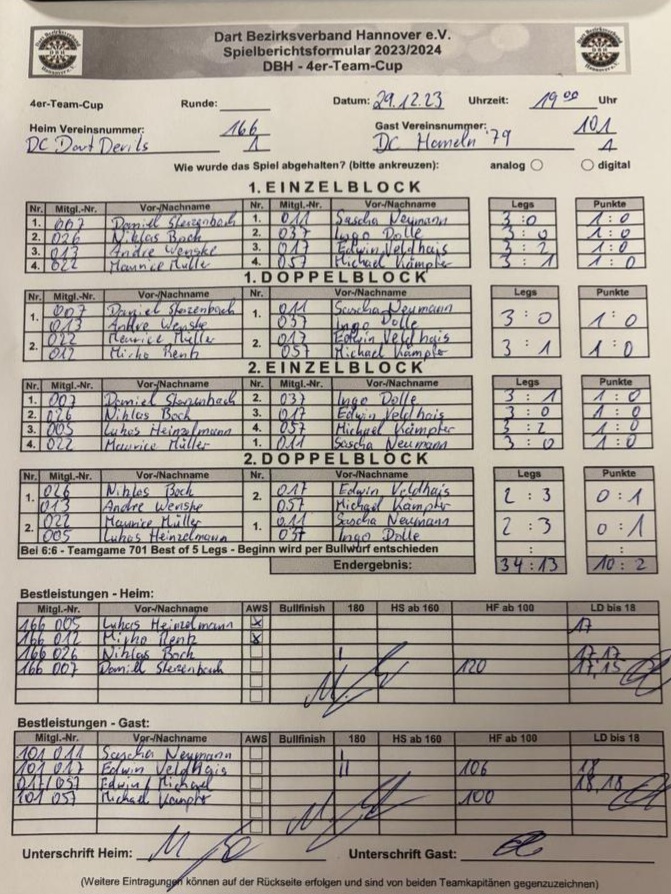 Dart Bezirksverband Hannover e.V.
Spielberichtsformular 2023/2024
DBH - 4er-Team-Cup
4er-Team-Cup Runde: Datum: 29.12.23 Uhrzeit: 19 00 Uhr
Heim Vereinsnummer: 166 Gast Vereinsnummer: 101
DC Dart Devils 1 DC Hameln '79 1
Wie wurde das Spiel abgehalten? (bitte ankreuzen): analog digital
1. EINZELBLOCK
Nr. Mitgl.-Nr. Vor-/Nachname Nr. Mitgl.-Nr. Vor-/Nachname Legs Punkte
1. 007 Daniel Sterzenbach 1. 011 Sascha Neumann 3 : 0 1 : 0
2. 026 Niklas Bock 2. 037 Ingo Dolle 3 : 0 1 : 0
3. 013 Andre Wenske 3. 017 Edwin Veldhais 3 : 2 1 : 0
4. 022 Maurice Müller 4. 057 Michael Kämpfer 3 : 1 1 : 0
1. DOPPELBLOCK
Nr. Mitgl.-Nr. Vor-/Nachname Nr. Mitgl.-Nr. Vor-/Nachname Legs Punkte
1. 007 Daniel Sterzenbach 1. 011 Sascha Neumann 3 : 0 1 : 0
013 Andre Wenske 037 Ingo Dolle
2. 022 Maurice Müller 2. 017 Edwin Veldhais 3 : 1 1 : 0
012 Mirko Rentz 057 Michael Kämpfer
2. EINZELBLOCK
Nr. Mitgl.-Nr. Vor-/Nachname Nr. Mitgl.-Nr. Vor-/Nachname Legs Punkte
1. 007 Daniel Sterzenbach 2. 037 Ingo Dolle 3 : 1 1 : 0
2. 026 Niklas Bock 3. 017 Edwin Veldhais 3 : 0 1 : 0
3. 005 Lukas Heinzelmann 4. 057 Michael Kämpfer 3 : 2 1 : 0
4. 022 Maurice Müller 1. 011 Sascha Neumann 3 : 0 1 : 0
2. DOPPELBLOCK
Nr. Mitgl.-Nr. Vor-/Nachname Nr. Mitgl.-Nr. Vor-/Nachname Legs Punkte
1. 026 Niklas Bock 2. 017 Edwin Veldhais 2 : 3 0 : 1
013 Andre Wenske 057 Michael Kämpfer
2. 022 Maurice Müller 1. 011 Sascha Neumann 2 : 3 0 : 1
005 Lukas Heinzelmann 037 Ingo Dolle
Bei 6:6 - Teamgame 701 Best of 5 Legs - Beginn wird per Bullwurf entschieden : :
Endergebnis: 34 : 13 10 : 2
Bestleistungen - Heim:
Mitgl.-Nr. Vor-/Nachname AWS Bullfinish 180 HS ab 160 HF ab 100 LD bis 18
166 005 Lukas Heinzelmann x 17
166 012 Mirko Rentz x
166 026 Niklas Bock I 17,17
166 007 Daniel Sterzenbach 120 17,15
Bestleistungen - Gast:
Mitgl.-Nr. Vor-/Nachname AWS Bullfinish 180 HS ab 160 HF ab 100 LD bis 18
101 011 Sascha Neumann I
101 017 Edwin Veldhais II 106 18
017/057 Edwin/Michael 18,18
101 057 Michael Kämpfer 100
Unterschrift Heim: Unterschrift Gast:
(Weitere Eintragungen können auf der Rückseite erfolgen und sind von beiden Teamkapitänen gegenzuzeichnen)